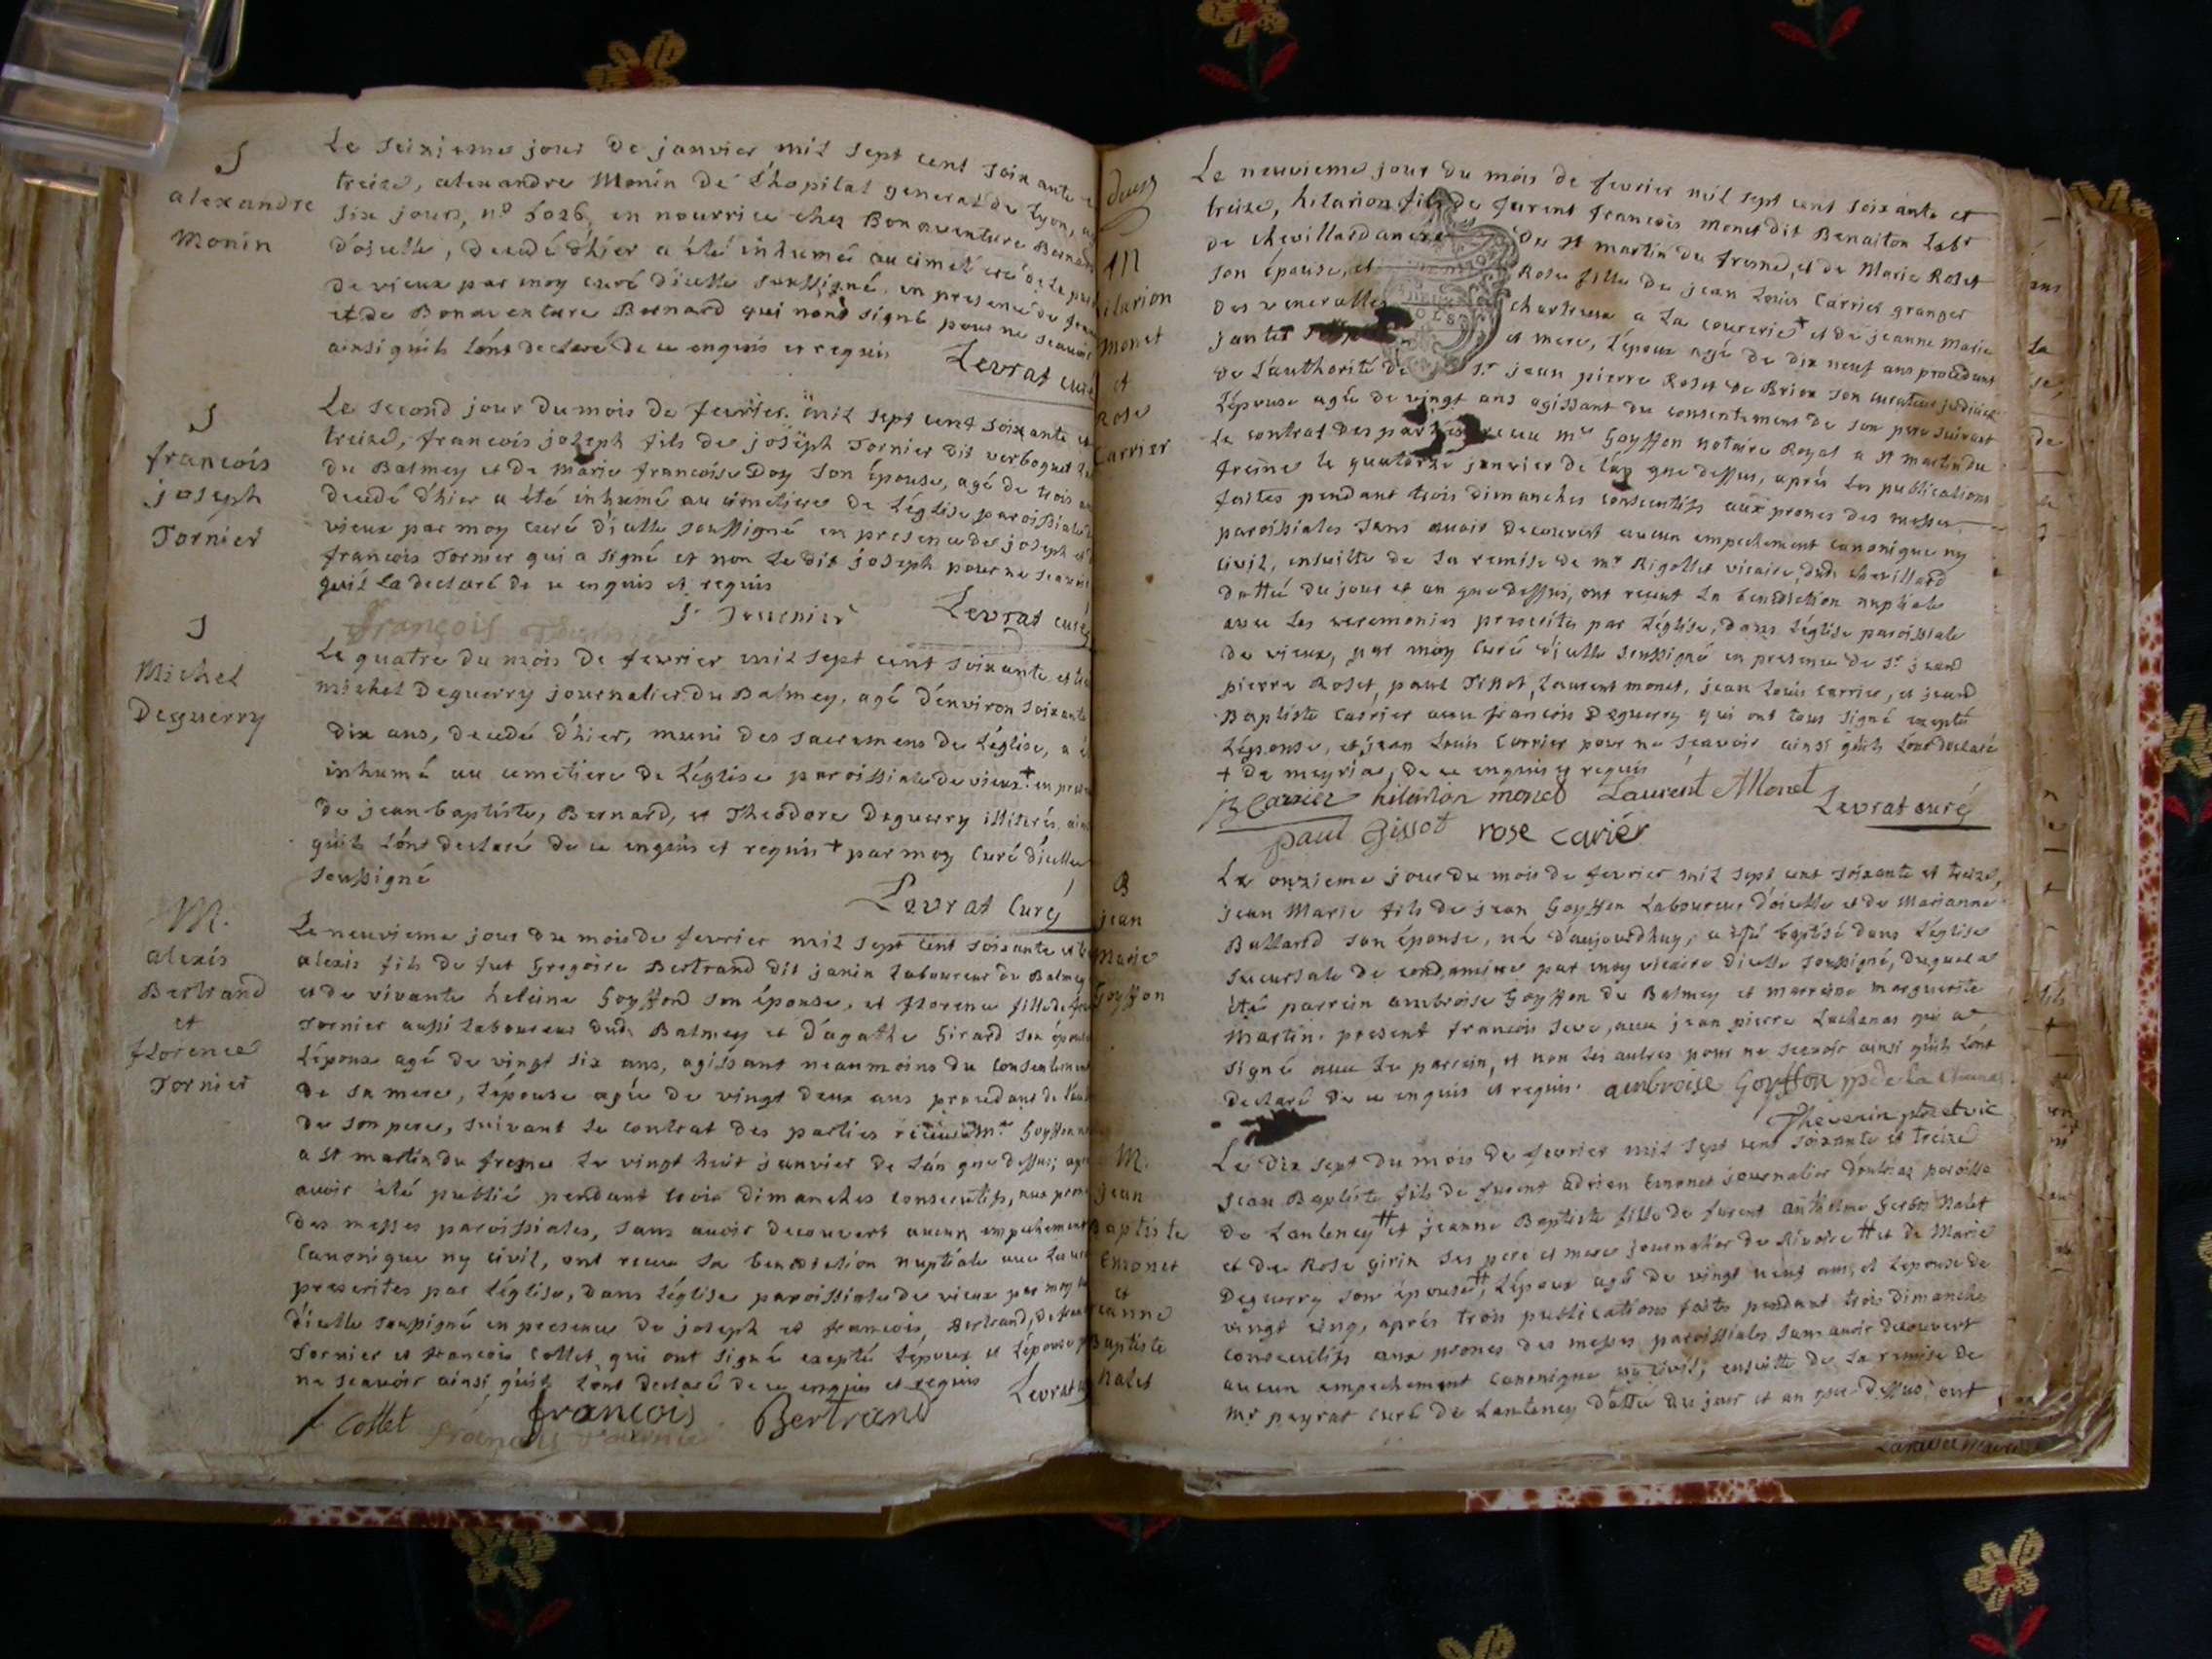 S
alexandre
Monin
Le seizieme jour de janvier mil sept cent soixante
treize, alexandre Monin de L'hopital general de Lyon,
six jours, n° 6026, en nourrice chez Bonaventure Bernard
d'oiselle, decedé d'hier a été inhumé au cimetiere de
de vieux par moy curé d'icelle soussigné, en presence de
et de Bonaventure Bernard qui n'ont signé pour ne scavoir
ainsi qu'ils l'ont declaré de ce enquis et requis
Levrat curé
S
francois
joseph
Tornier
Le second jour du mois de fevrier mil sept cent soixante et
treize, francois joseph fils de joseph Tornier dit verboquet
du Balmey et de Marie francoise Doy son épouse, agé de trois
decedé d'hier a été inhumé au cimetiere de L'église paroissiale
vieux par moy curé d'icelle soussigné en presence de joseph et
francois Tornier qui a signé et non le dit joseph pour ne scavoir
qu'il la declaré de ce enquis et requis
Levrat curé
S
Michel
Deguerry
Le quatre du mois de fevrier mil sept cent soixante et
michel Deguerry journalier du Balmey, agé d'environ soixante
dix ans, decedé d'hier, muni des sacremens de L'église, a
inhumé au cimetiere de L'église paroissiale de vieux + en
de jean-baptiste, Bernard, et Theodore Deguerry illiterés,
qu'ils l'ont declaré de ce enquis et requis + par moy Curé d'icelle
soussigné
Levrat Curé
M.
alexis
Bertrand
et
florence
Tornier
Le neuvieme jour du mois de fevrier mil sept cent soixante et
alexis fils de fut Gregoire Bertrand dit janin Laboureur du Balmey
et de vivante heleine Goyffond son épouse, et florence fille de
Tornier aussi Laboureur dud. Balmey et d'agathe Girard son épouse
L'époux agé de vingt six ans, agissant neanmoins du consentement
de sa mere, L'épouse agée de vingt deux ans procedant de
de son pere, suivant le contrat des parties m.e Goyffon
a st martin du fresne le vingt huit janvier de l'an que dessus;
avoir été publié pendant trois dimanches consecutifs, aux
des messes paroissiales, sans avoir decouvert aucun empechement
Canonique ny civil, ont recu la benediction nuptiale avec
prescrites par L'église, dans L'église paroissiale de vieux par moy
d'icelle soussigné en presence de joseph et francois Bertrand, de
Tornier et francois Collet qui ont signé excepté L'époux et L'épouse
ne scavoir ainsi qu'ils l'ont declaré de ce enquis et requis
Levrat
f Collet francois Bertrand
deux
M
hilarion
monet
et
Rose
Carrier
Le neuvieme jour du mois de fevrier mil sept cent soixante et
treize, hilarion fils de furent francois Monet dit Benaiton Lab.r
de chevillard du st martin du fresne, et de Marie Roset
son épouse, et Rose fille de jean Louis Carrier granger
des venerables chartreux a La courerie + et de jeanne Marie
et mere, L'époux agé de dix neuf ans procedant
de L'authorité de S.r jean pierre Roset de Brion son curateur judiciel
L'épouse agée de vingt ans agissant du consentement de son pere suivant
Le contrat des parties recu m.e Goyffon notaire Royal a st martin du
freine le quatorze janvier de l'an que dessus, aprés les publications
faites pendant trois dimanches consecutifs aux prones des messes
paroissiales sans avoir decouvert aucun empechement canonique ny
civil, ensuitte de La remise de m.r Rigollet vicaire dud. chevillard
datté du jour et an que dessus, ont recut La benediction nuptiale
avec les ceremonies prescrites par L'église, dans L'église paroissiale
de vieux, par moy Curé d'icelle soussigné en presence de S.r jean
pierre Roset, paul Tissot, Laurent monet, jean Louis Carrier, et jean
Baptiste Carrier avec francois Deguerry qui ont tous signé excepté
L'épouse, et jean Louis Carrier pour ne scavoir ainsi qu'ils l'ont declaré
+ de meyria, de ce enquis et requis
JB Carrier hilarion monet Laurent Monet
Levrat curé
paul Tissot rose carier
B
jean
Marie
Goyffon
Le onzieme jour du mois de fevrier mil sept cent soixante et treize,
jean Marie fils de jean Goyffon Laboureur d'oiselle et de Marianne
Ballard son épouse, né d'aujourdhuy, a été baptisé dans L'église
succursale de condamine par moy vicaire d'icelle soussigné, duquel a
été parrein ambroise Goyffon du Balmey et marreine marguerite
Martin. present francois Seve, avec jean pierre Lachanas qui a
signé avec Le parrein, et non les autres pour ne scavoir ainsi qu'ils l'ont
declaré de ce enquis et requis. ambroise Goyffon
Thevenin ptre et vic
M.
jean
Baptiste
Emonet
et
jeanne
Baptiste
Nalet
Le dix sept du mois de fevrier mil sept cent soixante et treize
Jean Baptiste fils de furent adrien Emonet journalier paroisse
de Lanteney # et jeanne Baptiste fille de furent anthelme Nalet
et de Rose girin ses pere et mere journalier de Rivoire # et de Marie
Deguerry son épouse #, L'époux agé de vingt neuf ans, et L'épouse de
vingt cinq, aprés trois publications faites pendant trois dimanche
consecutifs aux prones des messes paroissiales, sans avoir decouvert
aucun empechement canonique ny civil; ensuitte de La remise de
Mr peyrat curé de Lanteney datté du jour et an que dessus, ont